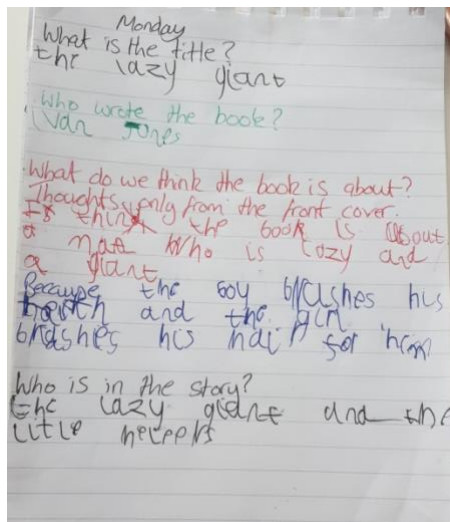 Monday
What is the title?
the lazy giant
Who wrote the book?
Ivan Jones
What do we think the book is about?
Thoughts only from the front cover.
I think the book is about
a man who is lazy and
a giant
Because the boy brushes his
and the girl
brashes his hair for him
Who is in the story?
the lazy giant and the
little helpers